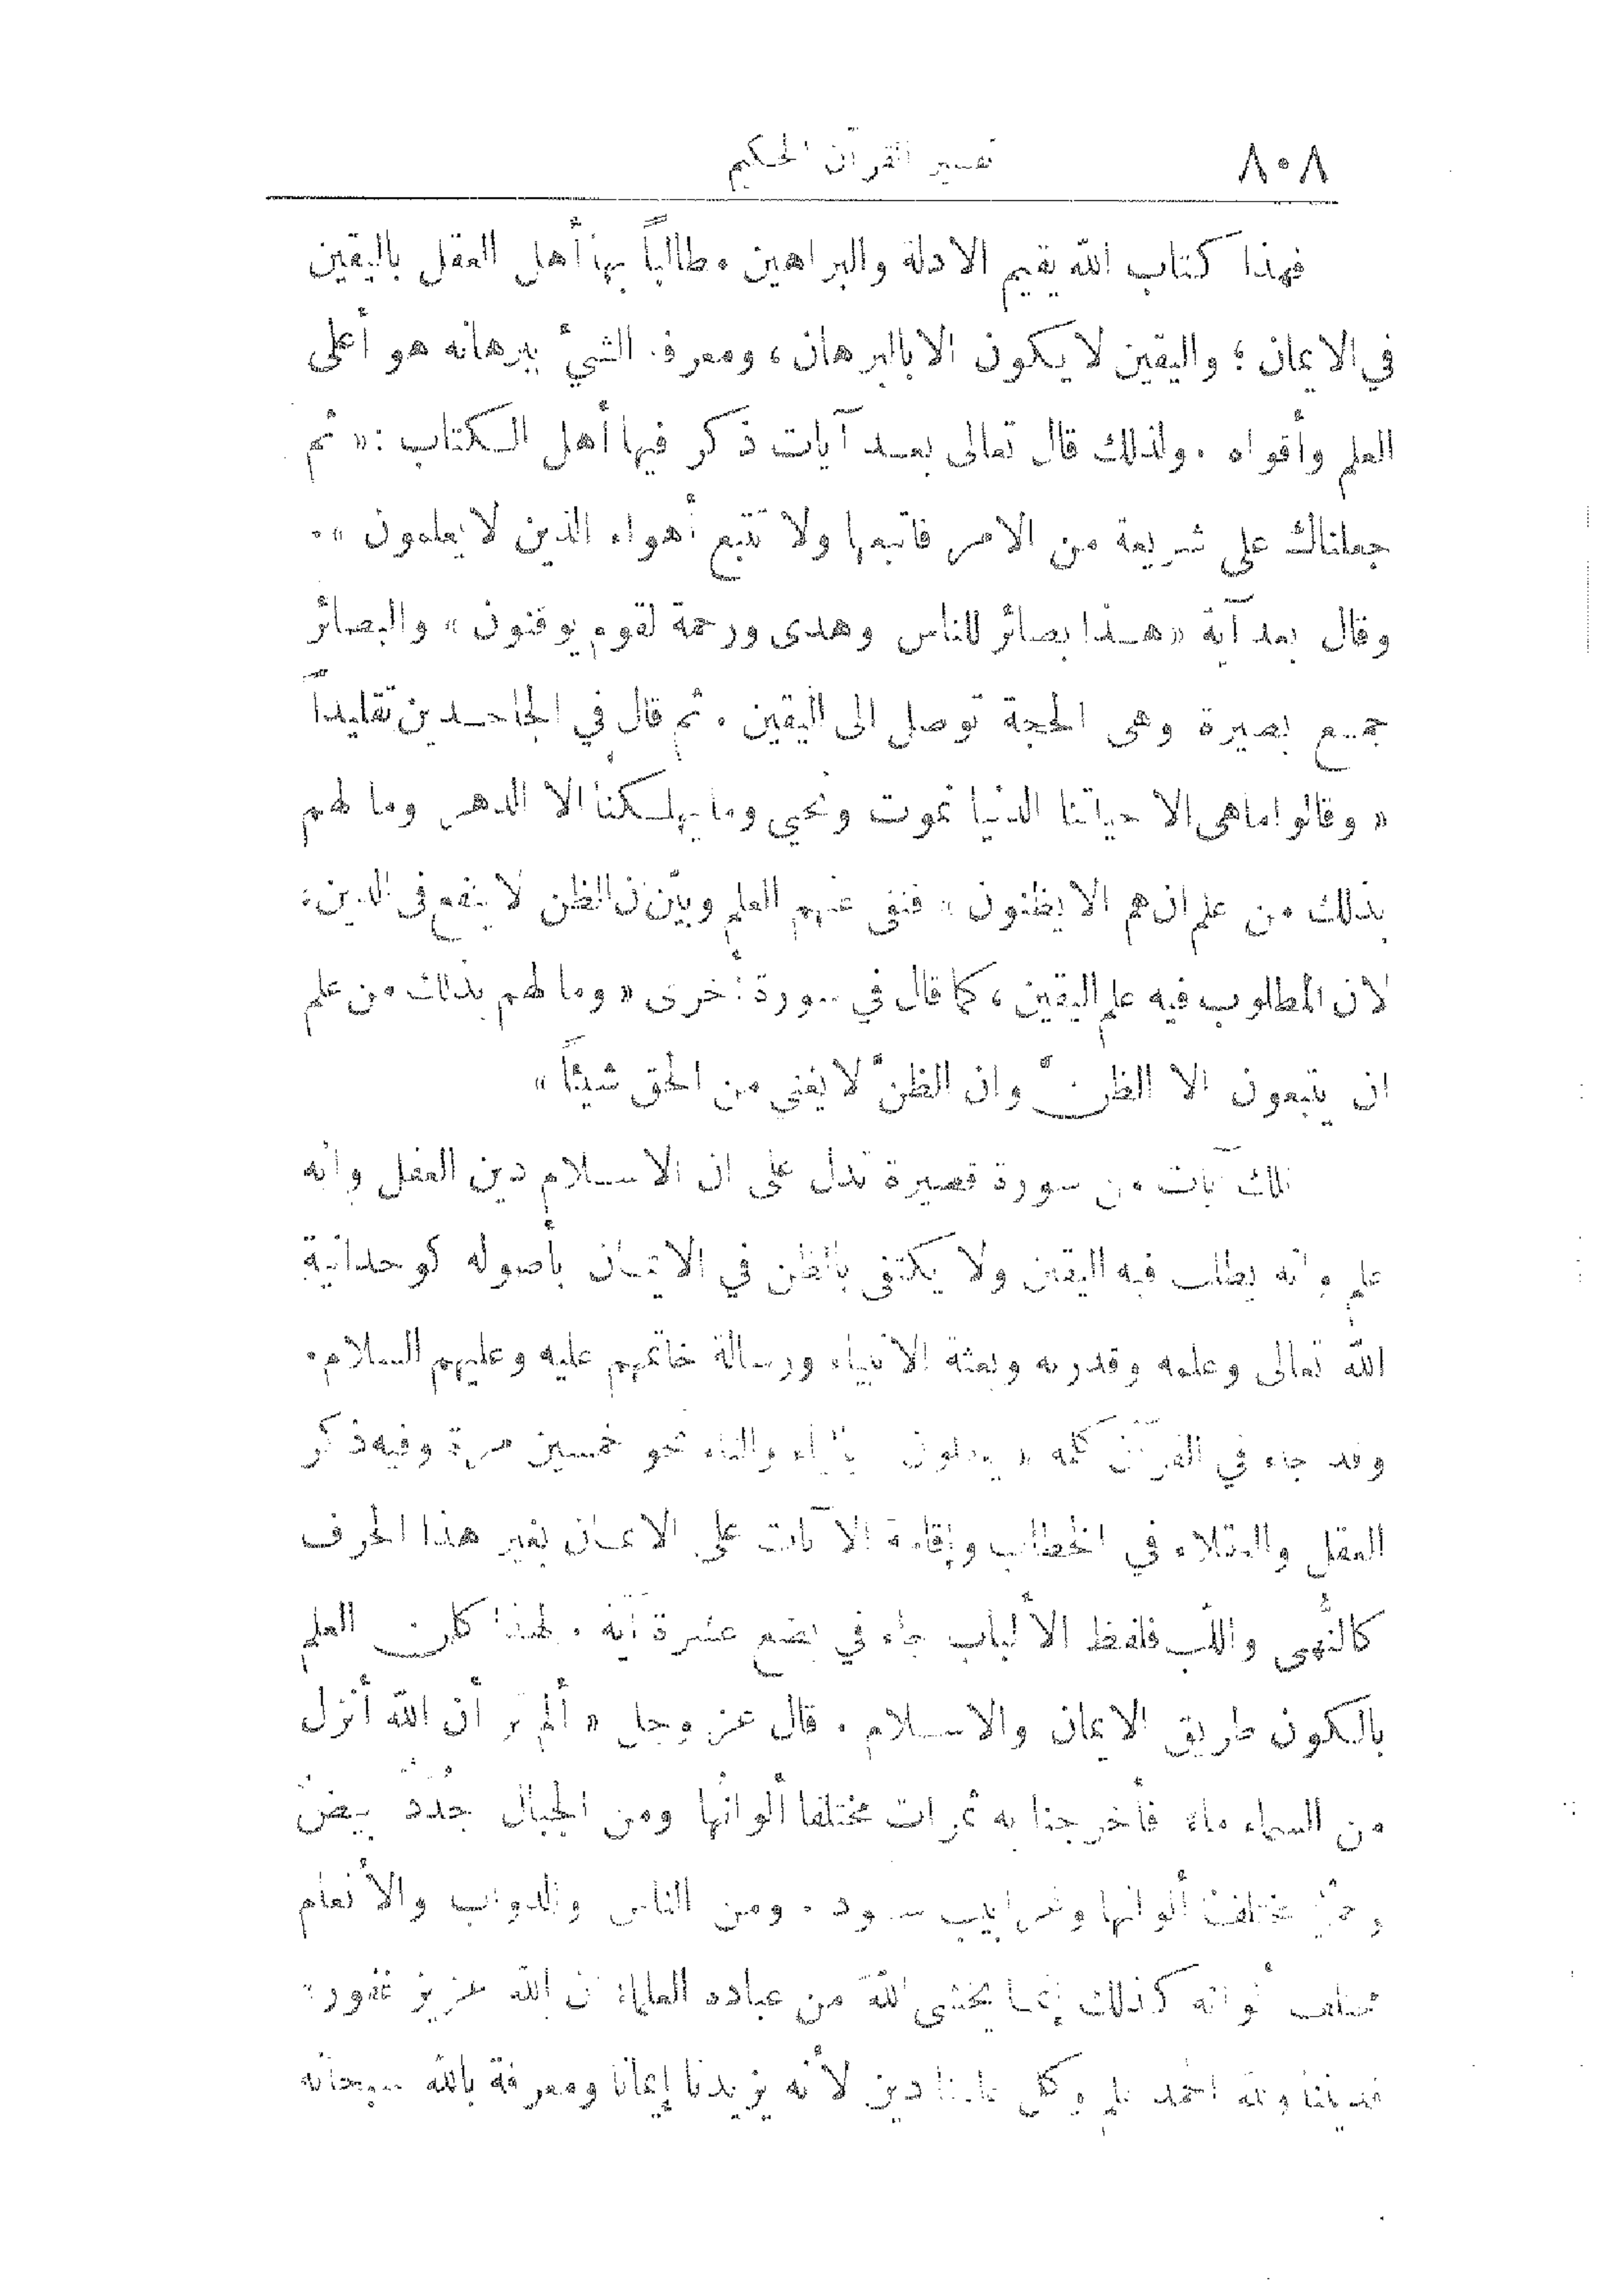 ٨٠٨
تفسير القرآن الحكيم
فهذا كتاب الله يقيم الادلة والبراهين مطالباً بها أهل العقل باليقين
في الايمان ؛ واليقين لا يكون الا بالبرهان ، ومعرفة الشيء ببرهانه هو أعلى
العلم وأقواه . ولذلك قال تعالى بعد آيات ذكر فيها أهل الكتاب : « ثم
جعلناك على شريعة من الامر فاتبعها ولا تتبع أهواء الذين لا يعلمون » .
وقال بعد آية « هذا بصائر للناس وهدى ورحمة لقوم يوقنون » والبصائر
جمع بصيرة وهى الحجة توصل الى اليقين . ثم قال في الجاحدين تقليداً
« وقالوا ماهى الا حياتنا الدنيا نموت ونحيى وما يهلكنا الا الدهر وما لهم
بذلك من علم ان هم الا يظنون » فنفى عنهم العلم وبيّن ان الظن لا ينفع في الدين ،
لان المطلوب فيه علم اليقين ، كما قال في سورة أخرى « وما لهم بذلك من علم
ان يتبعون الا الظنّ وان الظنّ لا يغني من الحق شيئاً »
تلك آيات من سورة قصيرة تدل على ان الاسلام دين العقل وانه
علم وانه يطلب فيه اليقين ولا يكتفى بالظن في الايمان بأصوله كوحدانية
الله تعالى وعلمه وقدرته وبعثة الانبياء ورسالة خاتمهم عليه وعليهم السلام .
وقد جاء في القرآن كله « يعقلون » بالياء والتاء نحو خمسين مرة وفيه ذكر
العقل والعقلاء في الخطاب وإقامة الآيات على الايمان بغير هذا الحرف
كالنُّهى واللب فلفظ الألباب جاء في بضع عشرة آية . لهذا كان العلم
بالكون طريق الايمان والاسلام . قال عز وجل « ألم تر أن الله أنزل
من السماء ماء فأخرجنا به ثمرات مختلفا ألوانها ومن الجبال جُدَدٌ بيضٌ
وحمرٌ مختلف ألوانها وغرابيب سود . ومن الناس والدواب والأنعام
مختلف ألوانه كذلك إنما يخشى اللهَ من عباده العلماءُ ان الله عزيز غفور »
فديننا ولله الحمد علم وكل علمنا دين لأنه يزيدنا إيمانا ومعرفة بالله سبحانه